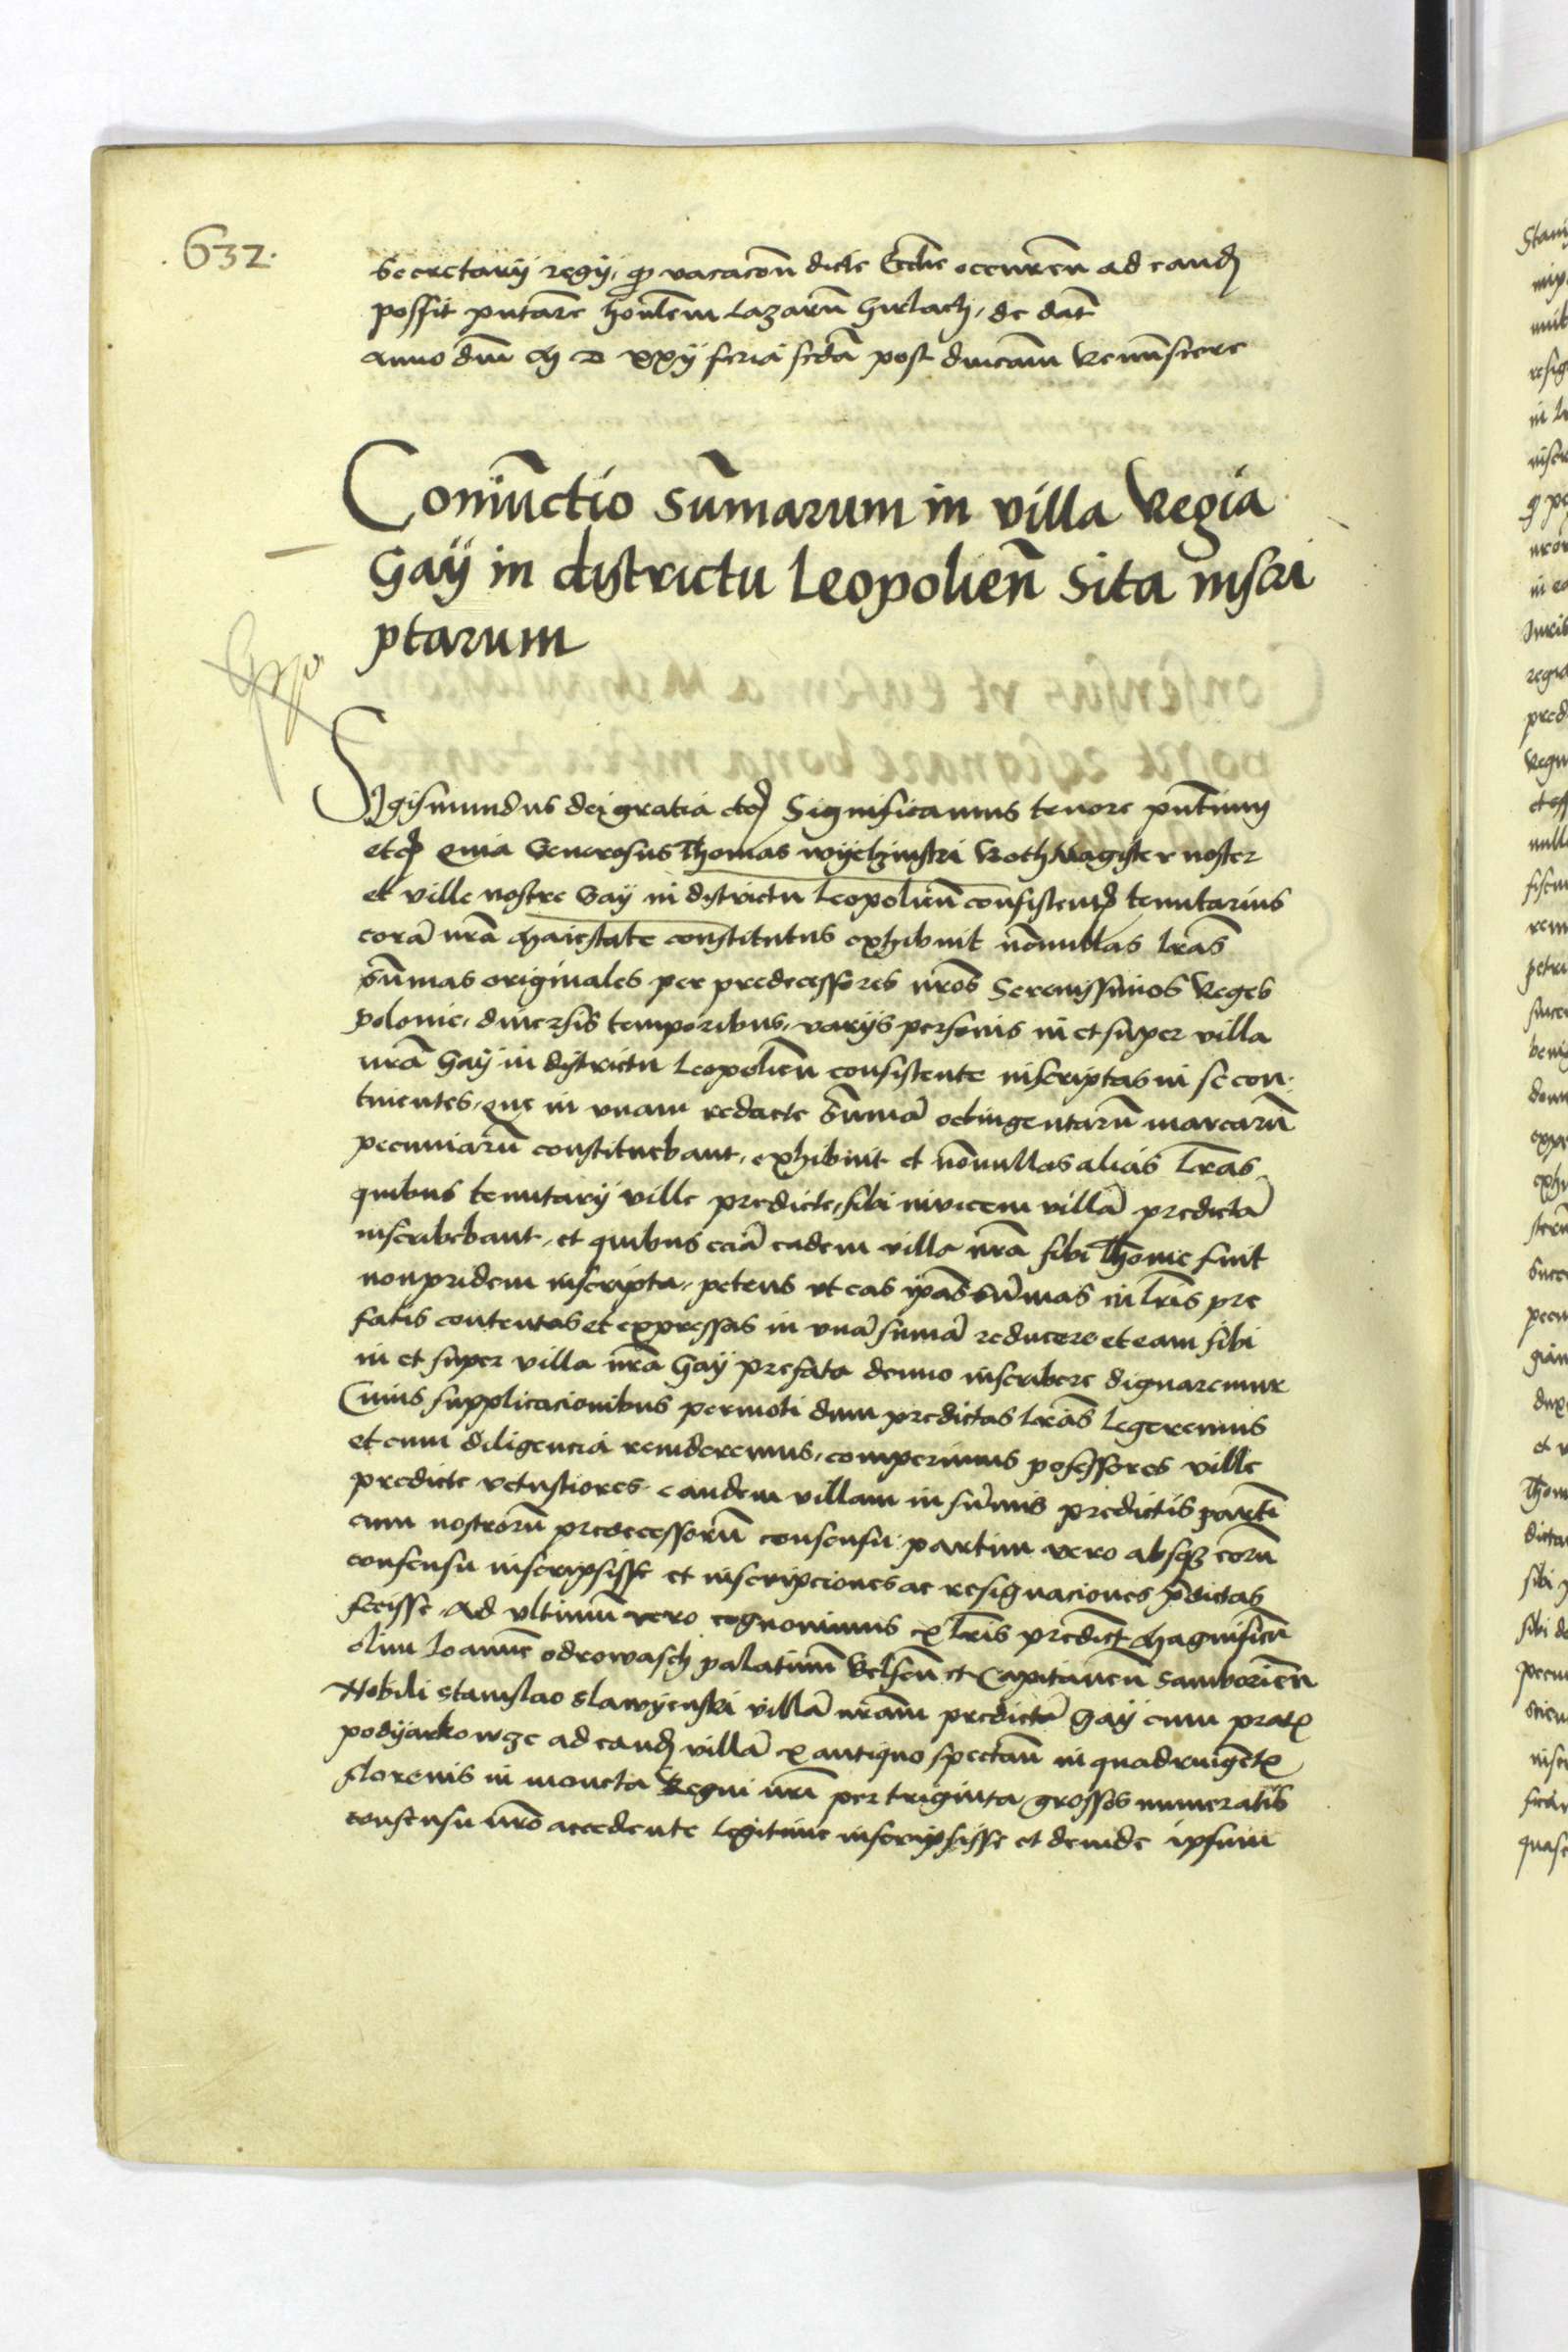 632.
Secretarÿ regÿ, ꝓ vacacoñ dicte Ecclie occurreñ ad eand
possit pntare honlem Lazarū Girlach, de dat
anno dni M D XXIJ feria scda post dnicam Reminiscere
Coniunctio sūmarum in villa Regia
Gaÿ in districtu Leopolieñ sita inscri
ptarum
Sigismundus dei gratia etc Significamus tenore pntium
etc quia Generosus Thomas wÿelzinski Rothmagister noster
et ville nostre Gaÿ in districtu Leopolieñ consisteñ tenutarius
corā nra Maiestate constitutus exhibuit nōnullas lras
sūmas originales per predecessores nros Serenissimos Reges
polonie, diuersis temporibus, varijs personis in et super villa
nra Gaÿ in districtu Leopolieñ consistente inscriptas in se con-
tinentes, que in vnam redacte sūmā octingentarū marcarū
pecuniarū constituebant, exhibuit et nōnullas alias lras,
quibus tenutarÿ ville predicte, sibi inuicem villā predictā
inscribebant, et quibus eciā eadem villa nra sibi Thome fuit
nonpridem inscripta, petens vt eas ipas sūmas in lris pre
fatis contentas et expressas in vnā sumā reducere et eam sibi
in et super villa nra Gaÿ prefata denuo inscribere dignaremur
Cuius supplicacionibus permoti dum predictas lras legeremus
et cum diligencia reuideremus, comperimus possessores ville
predicte vetustiores eandem villam in sūmis predictis parti
cum nostrorū predecessorū consensu partim vero absqꝫ eorū
consensu inscripsisse et inscripciones ac resignaciones pdictas
fecisse. Ad vltimū vero cognouimus ex lris predict Magnificū
olim Joanne odrowasch palatinū Belseñ et Capitaneū Samborieñ
Nobili Stanislao Slawÿenski villā nram predictā Gaÿ cum prat
podÿarkowze ad eand villā ex antiquo spectañ in quadringent
florenis in moneta Regni nri per triginta grossos numeratis
consensu nro accedente legitime inscripsisse et deinde ipsum